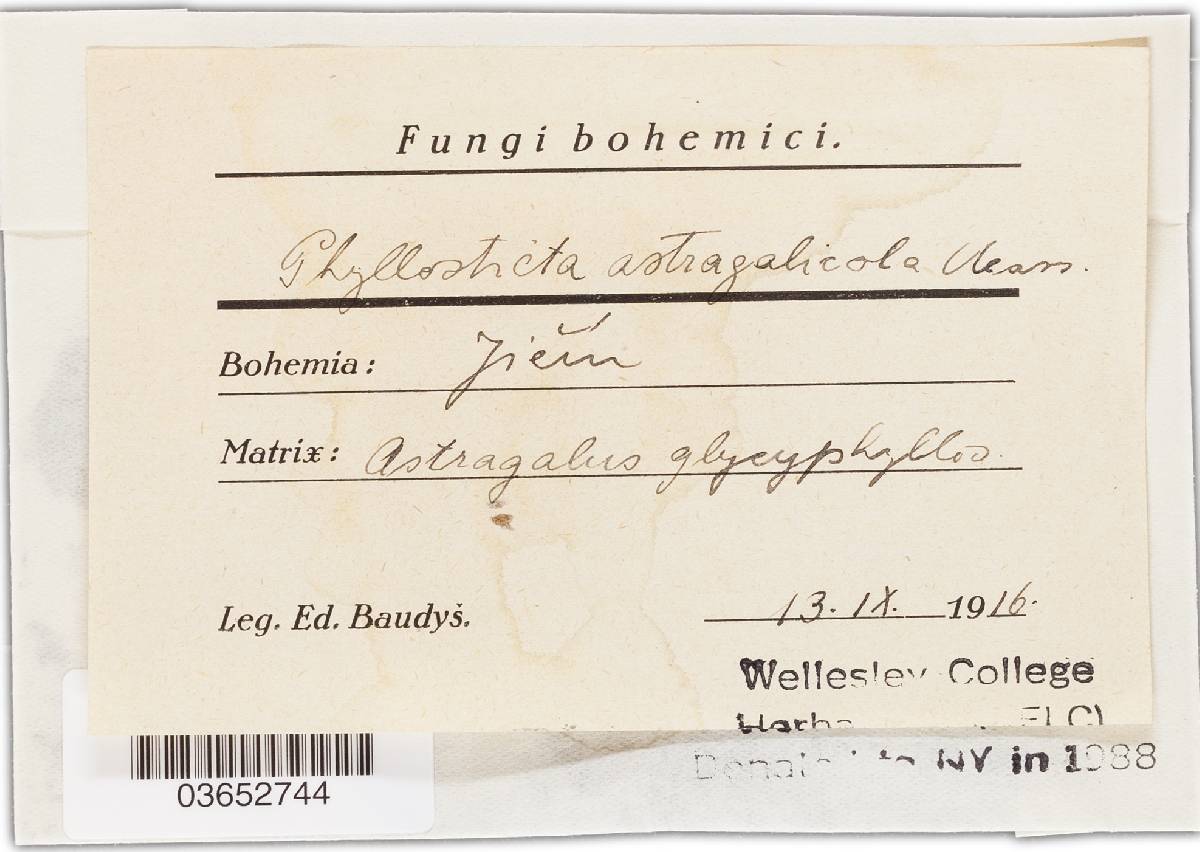 Fungi bohemici.
Phyllosticta astragalicola
Bohemia: Jičín
Matrix: Astragalus glycyphyllos.
Leg. Ed. Baudyš. 13. IX. 1916.
Wellesley College
in 1988
NY
03652744